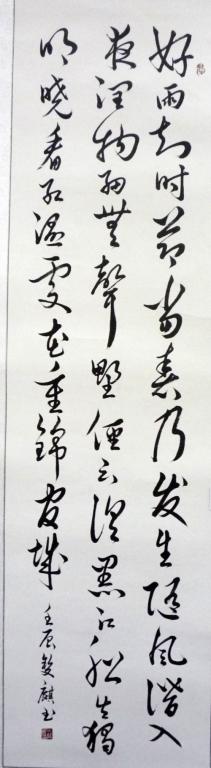 好雨知时节当春乃发生随风潜入
夜润物细無聲野径云俱黑江船火獨
明晓看红湿处花重锦官城
壬辰雙麒书